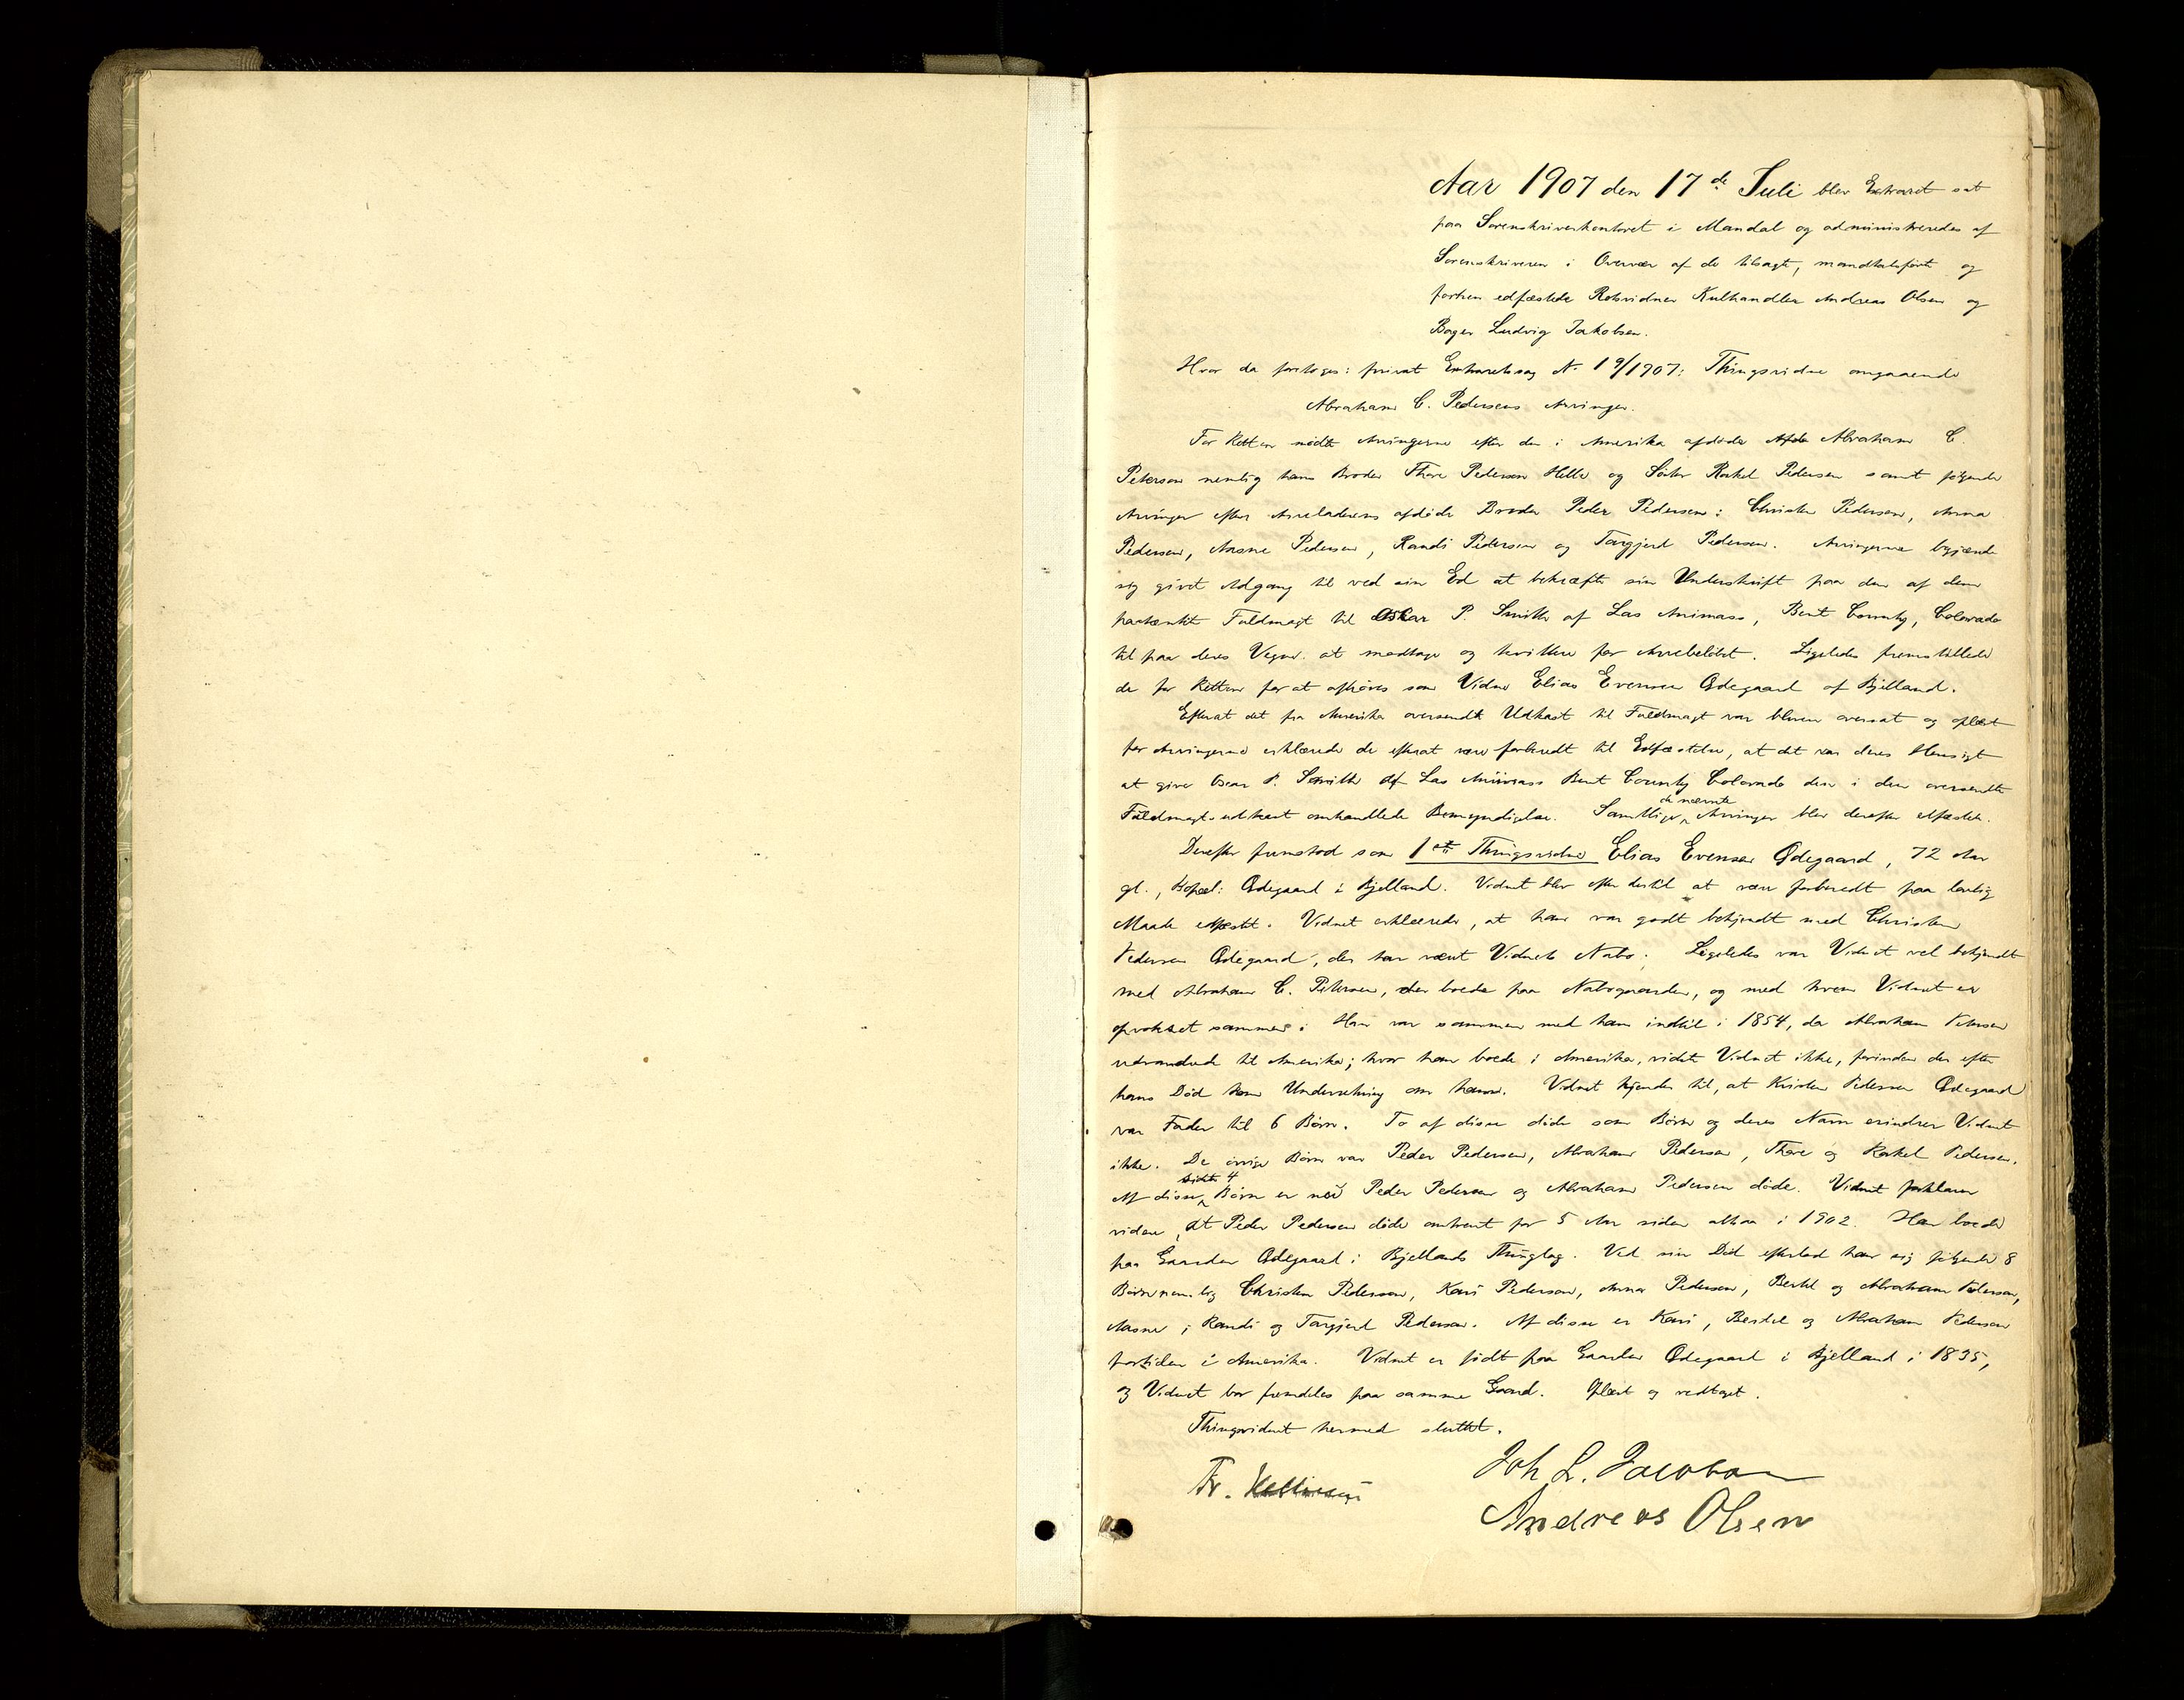 Aar 1907 den 17de Juli blev Extraret sat
paa Sorenskriverkontoret i Mandal og administreredes af
Sorenskriveren i Overvær af de tilsagte, mandtalsførte og
forhen edfæstede Retsvidner Kulhandler Andreas Olsen og
Bager Ludvig Jakobsen.
Hvor da foretoges: privat Extraretssag N. 19/1907: Thingsvidne angaaende
Abraham C. Pedersens Arvinger.
For Retten mødte Arvingerne efter den i Amerika afdøde Abraham C.
Peterson nemlig hans Broder Thore Pedersen Helle og Søster Rakel Pedersen samt følgende
Arvinger efter Arveladerens afdøde Broder Peder Pedersen: Christen Pedersen, Anna
Pedersen, Aasne Pedersen, Randi Pedersen og Targjerd Pedersen. Arvingerne begjærede
sig givet Adgang til ved sin Ed at bekræfte sin Underskrift paa den af dem
paatænkte Fuldmagt til Oskar P. Smith af Las Animass, Bent County, Colorado
til paa deres Vegne at modtage og kvittere for Arvebeløbet. Ligeledes fremstillede
de for Retten for at afhøres som Vidne Elias Evensen Ødegaard af Bjelland.
Efterat det fra Amerika oversendte Udkast til Fuldmagt var bleven oversat og oplæst
for Arvingerne erklærede de efterat være forberedt til Edfæstelse, at det var deres Hensigt
at give Oscar P. Smith af Las Animass Bent County Colorado den i den oversendte
Fuldmagtsudkast omhandlede Bemyndigelse. Samtlige de nævnte Arvinger blev derefter edfæstet.
Derefter fremstod som 1ste Thingsvidne Elias Evensen Ødegaard, 72 Aar
gl., Bopæl: Ødegaard i Bjelland. Vidnet blev efter dertil at være forberedt paa lovlig
Maade edfæstet. Vidnet erklærede, at han var godt bekjendt med Christen
Pedersen Ødegaard, der har været Vidnets Nabo. Ligeledes var Vidnet vel bekjendt
med Abraham C. Petersen, der boede paa Nabogaarden, og med hvem Vidnet er
opvokset sammen. Han var sammen med ham indtil i 1854, da Abraham Petersen
udvandrede til Amerika; hvor han boede i Amerika, vidste Vidnet ikke, forinden der efter
hans Død kom Underretning om ham. Vidnet kjender til, at Kristen Pedersen Ødegaard
var Fader til 6 Børn. To af disse døde som Børn og deres Navn erindrer Vidnet
ikke. De øvrige Børn var Peder Pedersen, Abraham Pedersen, Thore og Rakel Pedersen.
Af disse sidste 4 Børn er nu Peder Pedersen og Abraham Pedersen døde. Vidnet forklarer
videre, at Peder Pedersen døde omtrent for 5 Aar siden altsaa i 1902. Han boede
paa Gaarden Ødegaard i Bjellands Thinglag. Ved sin Død efterlod han sig følgende 8
Børn nemlig Christen Pedersen, Kari Pedersen, Anna Pedersen, Bertel og Abraham Pedersen,
Aasne, Randi og Targjerd Pedersen. Af disse er Kari, Bertel og Abraham Pedersen
fortiden i Amerika. Vidnet er født paa Gaarden Ødegaard i Bjelland i 1835,
og Vidnet bor fremdeles paa samme Gaard. Oplæst og vedtaget.
Thingsvidnet hermed sluttet.
Joh L. Jacobsen
Fr.
Andreas Olsen